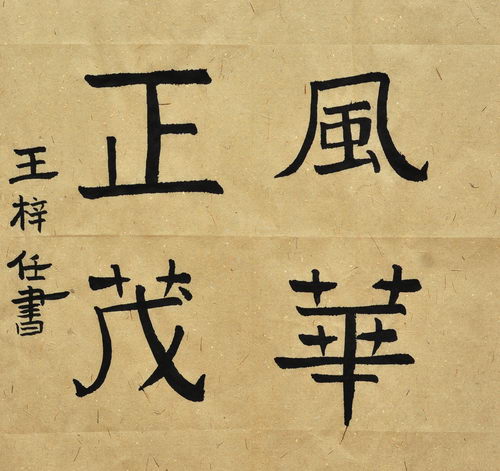 風華
正茂
王梓任書